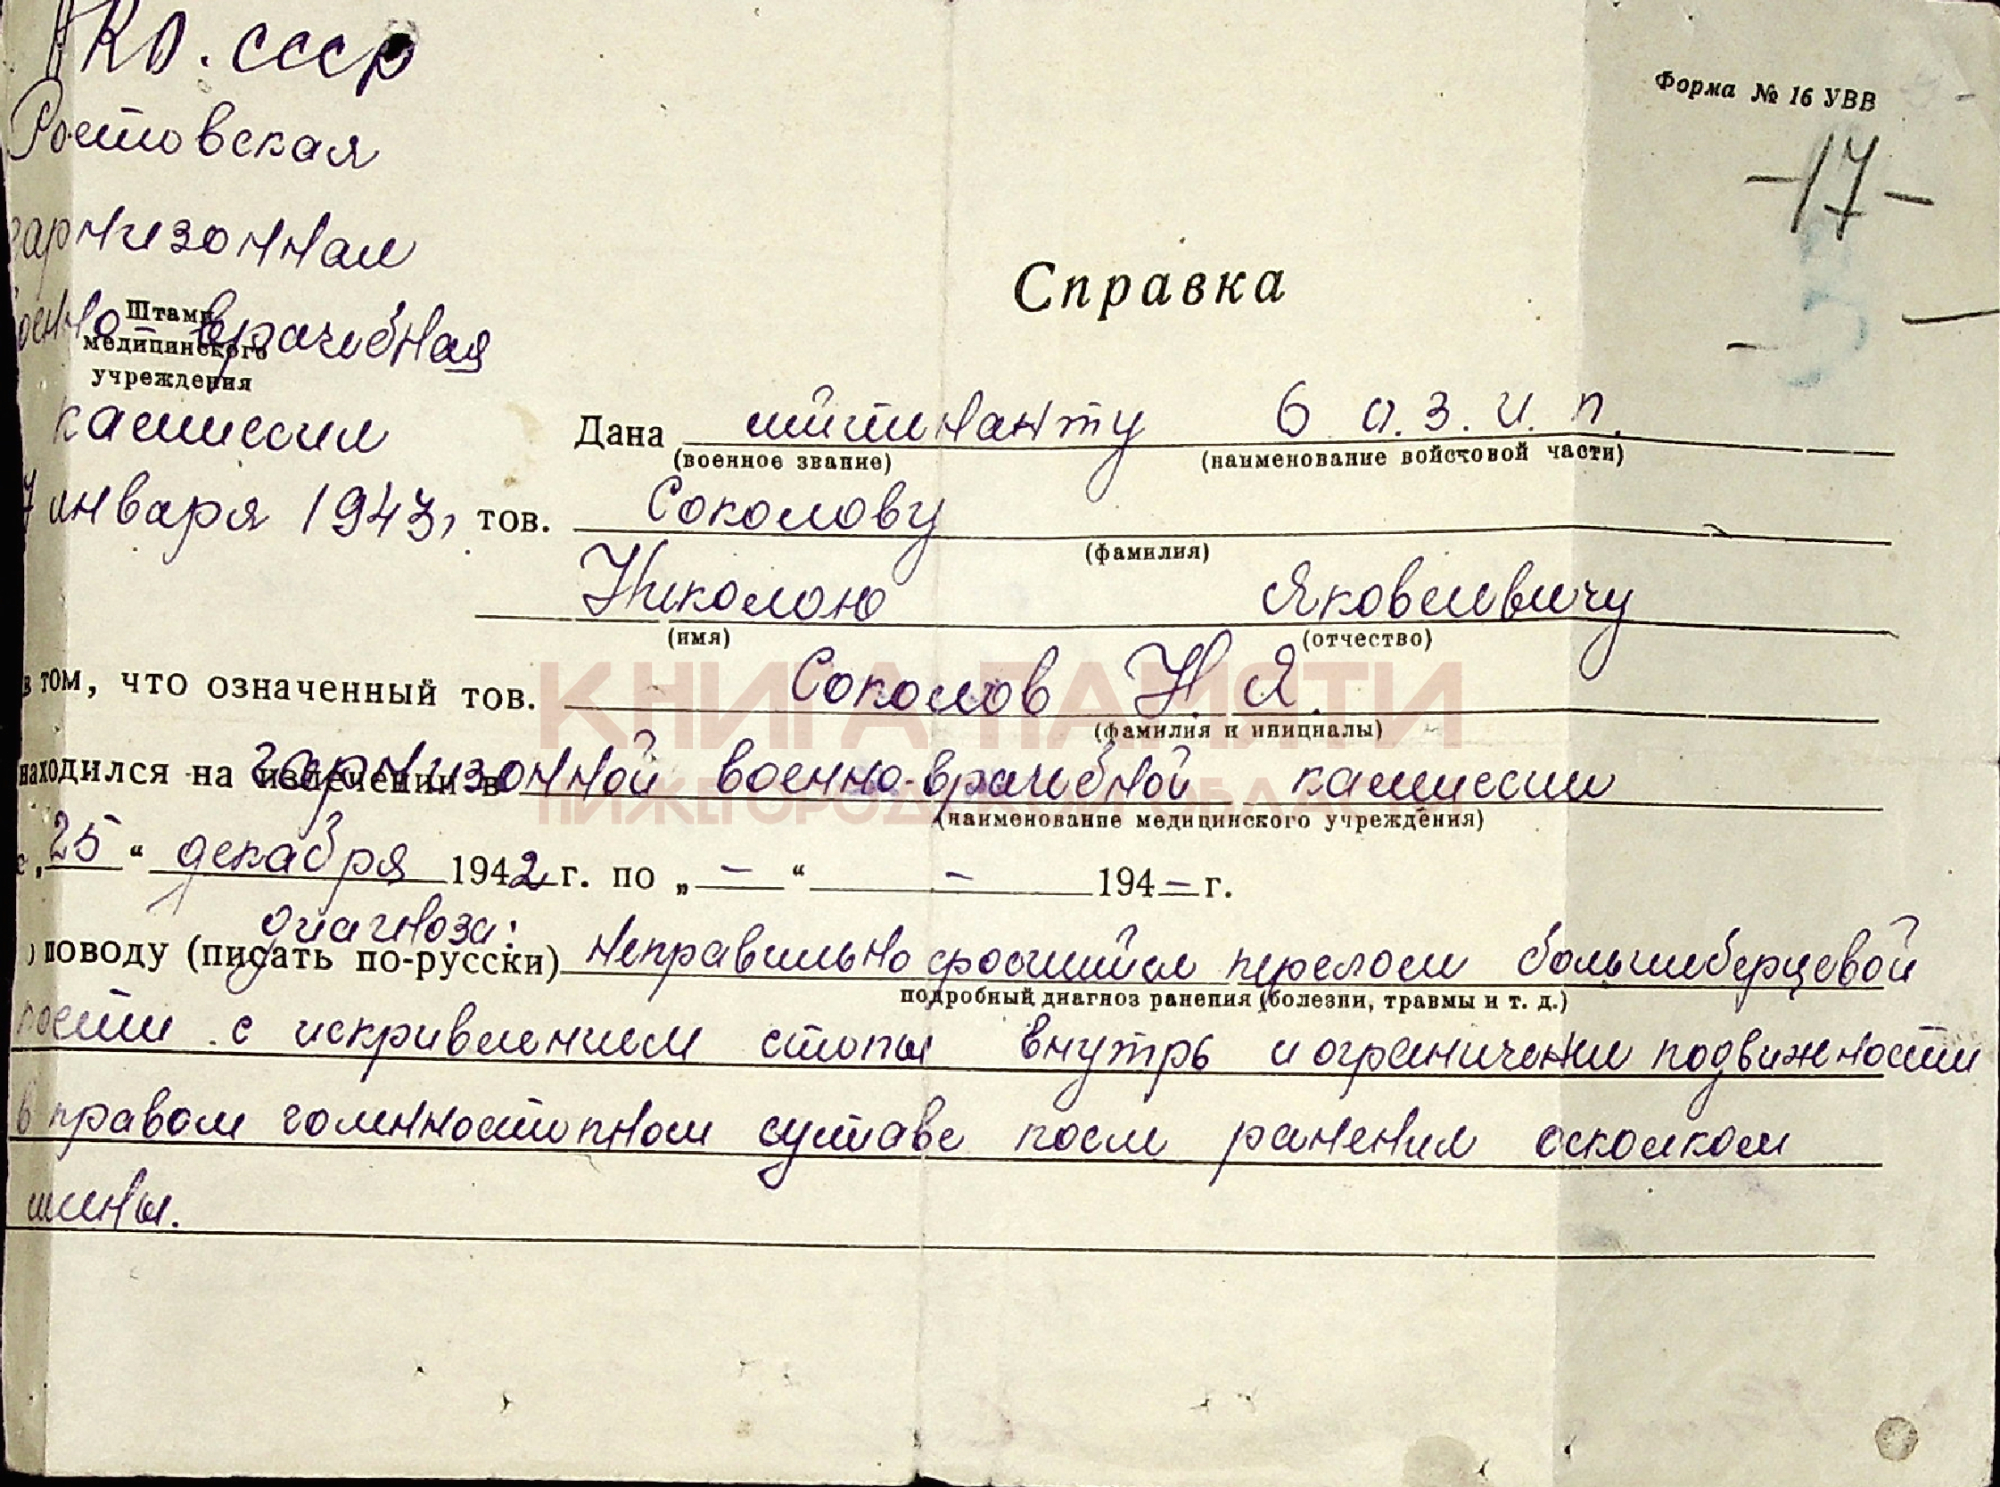 НКО. СССР
Форма № 16 УВВ
Ростовская
-17-
гарнизонная
Справка
военно-врачебная
Штамп
медицинского
учреждения
комиссия
Дана лейтенанту 6 о.з.и.п.
(военное звание) (наименование войсковой части)
7 января 1943г тов. Соколову
(фамилия)
Николаю Яковлевичу
(имя) (отчество)
в том, что означенный тов. Соколов Н. Я.
(фамилия и инициалы)
КНИГА ПАМЯТИ
находился на излечении в гарнизонной военно-врачебной комиссии
НИЖЕГОРОДСКОЙ ОБЛАСТИ
(наименование медицинского учреждения)
с „25“ декабря 1942 г. по „—“ — 194— г.
диагноза:
по поводу (писать по-русски) Неправильно сросшийся перелом большеберцовой
подробный диагноз ранения (болезни, травмы и т. д.)
кости с искривлением стопы внутрь и ограничении подвижности
в правом голенностопном суставе после ранения осколком
мины.